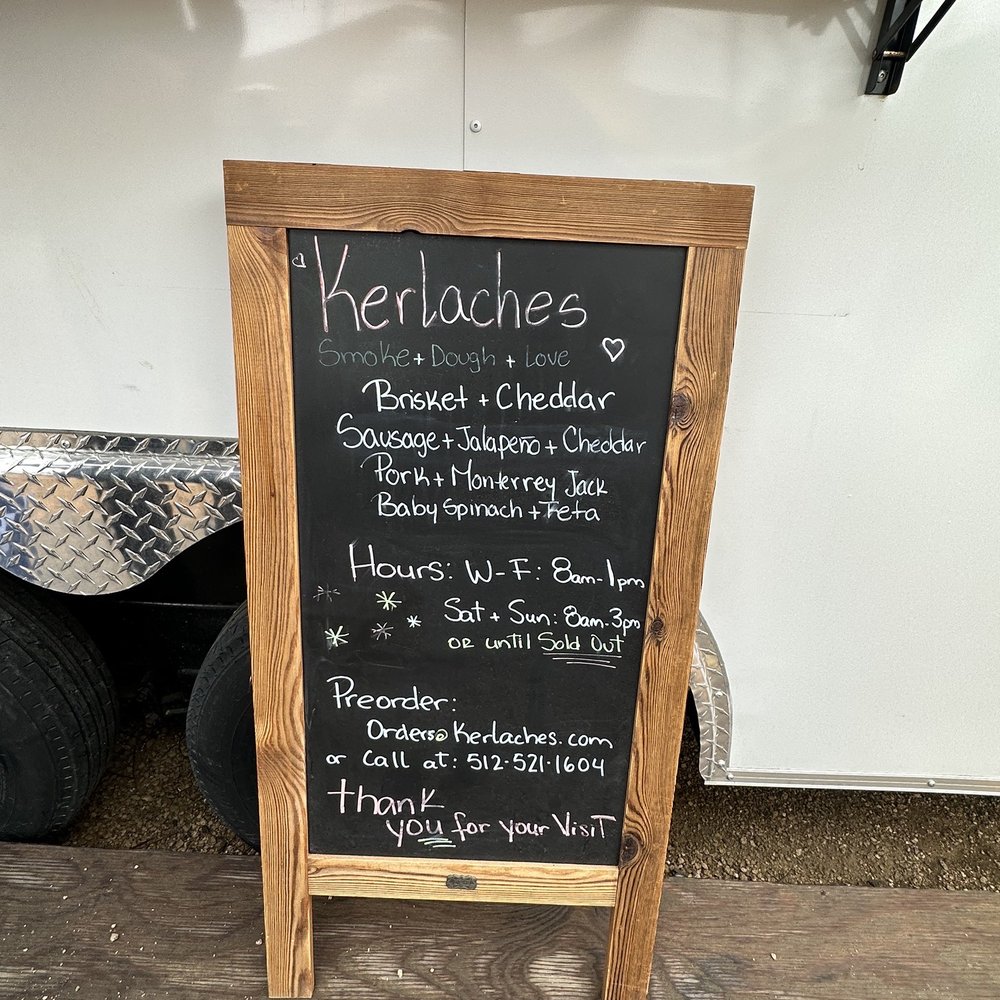 Kerlaches
Smoke + Dough + Love
Brisket + Cheddar
Sausage + Jalapeño + Cheddar
Pork + Monterrey Jack
Baby Spinach + Feta
Hours: W-F: 8am-1pm
Sat + Sun: 8am-3pm
or until Sold Out
Preorder:
Orders@Kerlaches.com
or Call at: 512-521-1604
thank
you for your Visit